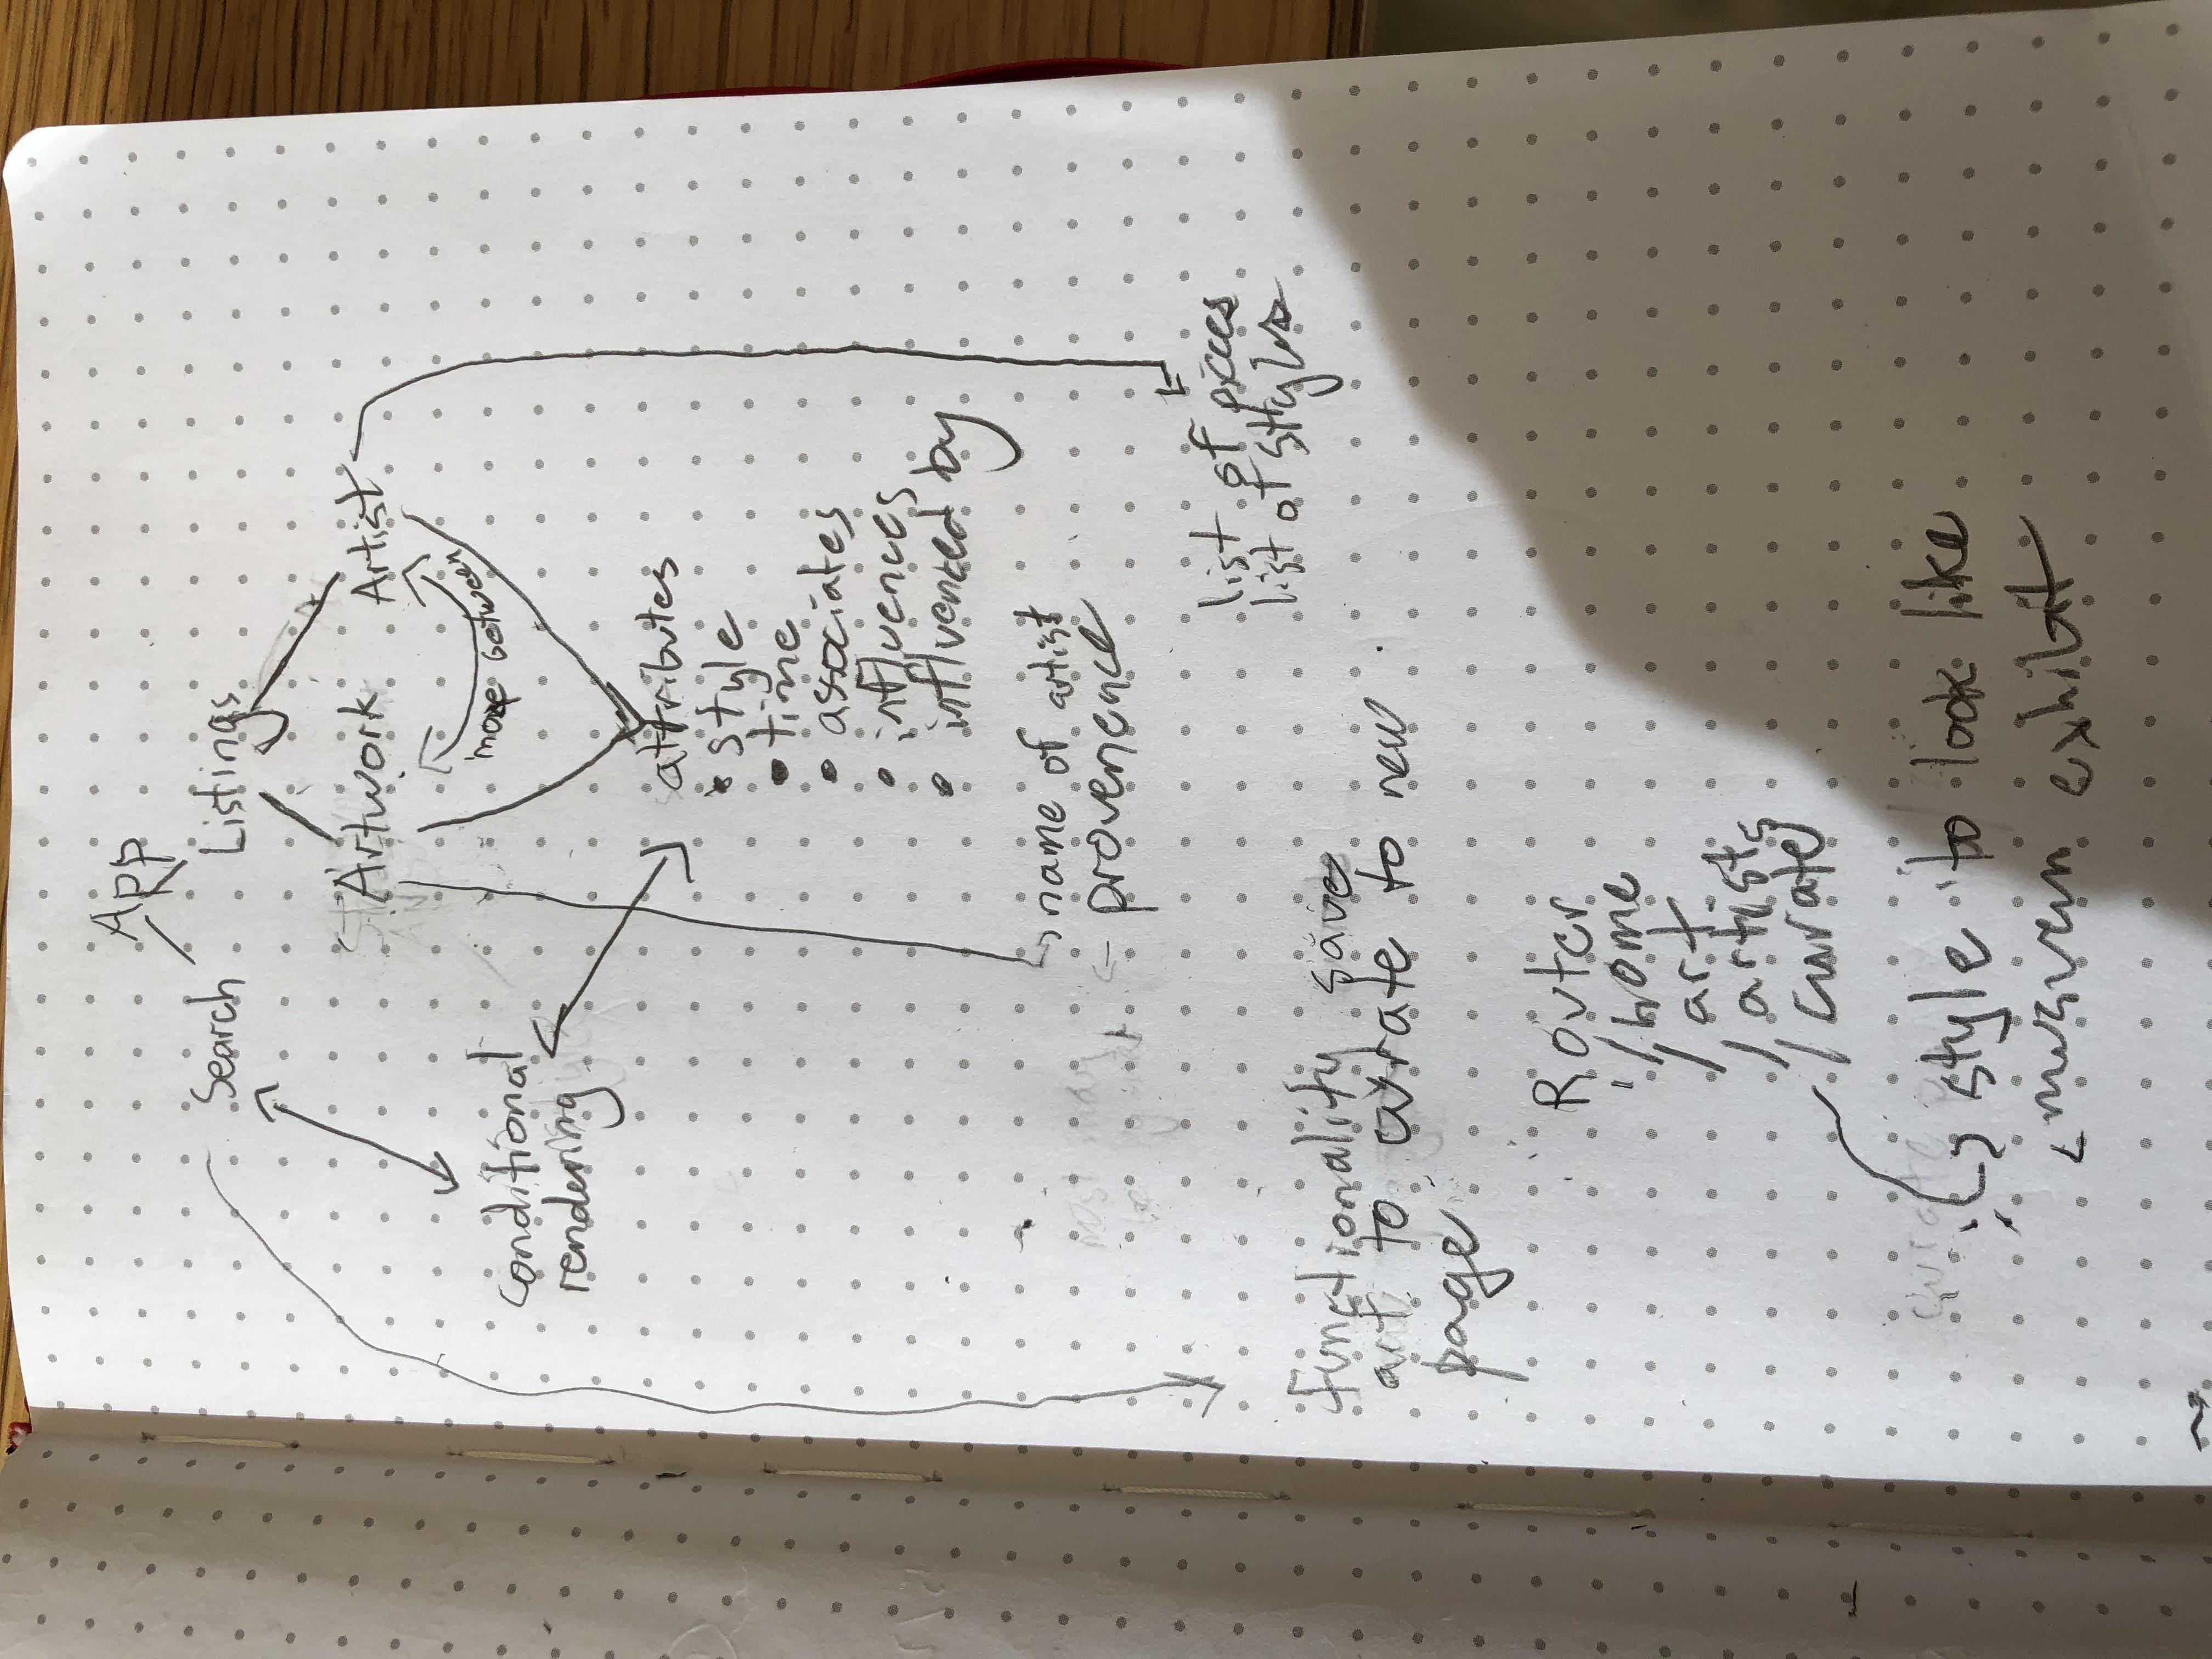 App
Search Listings
Artwork Artist
move between
conditional
rendering
attributes
• style
• time
• associates
• influences
• influenced by
name of artist
provenence
list of pieces
list of styles
functionality save
art to curate to new
page
Router
/home
/art
/artists
/curate
style to look like
museum exhibit